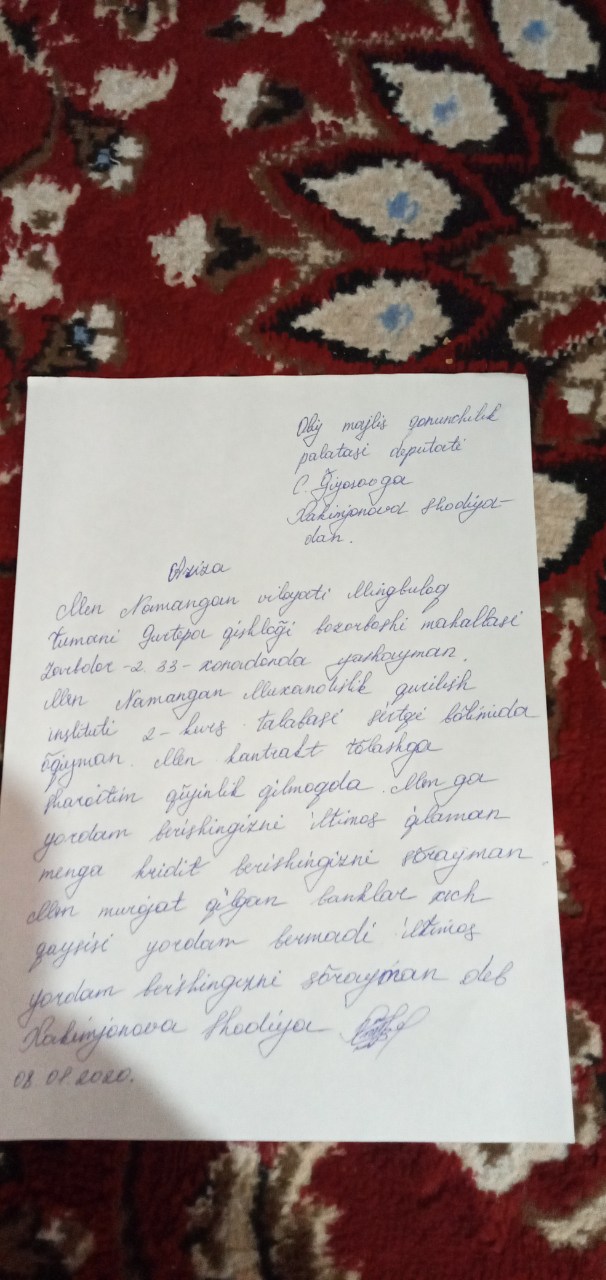 Oliy majlis qonunchilik
palatasi deputati
C. Ğiyosovga
Xakimjonova Shodiya-
dan.
Ariza
Men Namangan viloyati Mingbuloq
tumani Gurtepa qishloği bozorboshi mahallasi
Zarbdor-2. 33-xonadonda yashayman.
Men Namangan Muxandislik qurilish
instituti 2-kurs talabasi sirtqi bölimida
öqiyman. Men kantrakt tölashga
sharoitim qiyinlik qilmoqda. Men ga
yordam berishingizni iltimos qilaman
menga kridit berishingizni sörayman.
Men murojat qilgan banklar xich
qaysisi yordam bermadi iltimos
yordam berishingizni sörayman deb
Xakimjonova Shodiya
08.01.2020.